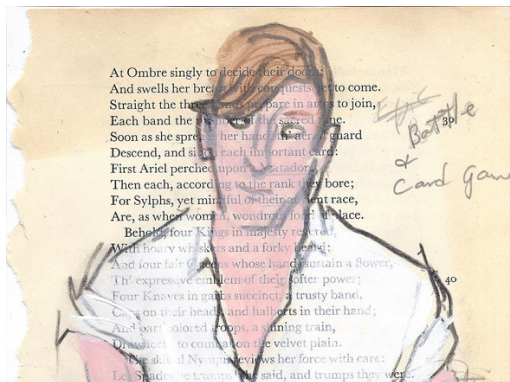 At Ombre singly to decide their doom;
And swells her breast with conquests yet to come.
Straight the three bands prepare in arms to join,
Each band the of the sacred nine.
Soon as she spreads her hand, th' aerial guard
Descend, and sit each important card:
First Ariel perched upon a Matadore,
Then each, according to the rank they bore;
For Sylphs, yet mindful of their ancient race,
Are, as when women, wondrous fond of place.
Behold, four Kings in majesty revered,
With hoary whiskers and a forky beard;
And four fair Queens whose hands sustain a flower,
Th' expressive emblem of their softer power;
Four Knaves in garbs succinct, a trusty band,
Caps on their heads, and halberts in their hand;
And parti-colored troops, a shining train,
Draw forth to combat on the velvet plain.
The skilful Nymph reviews her force with care:
Let Spades be trumps! she said, and trumps they were.
30
Battle
&
Card Gam
40